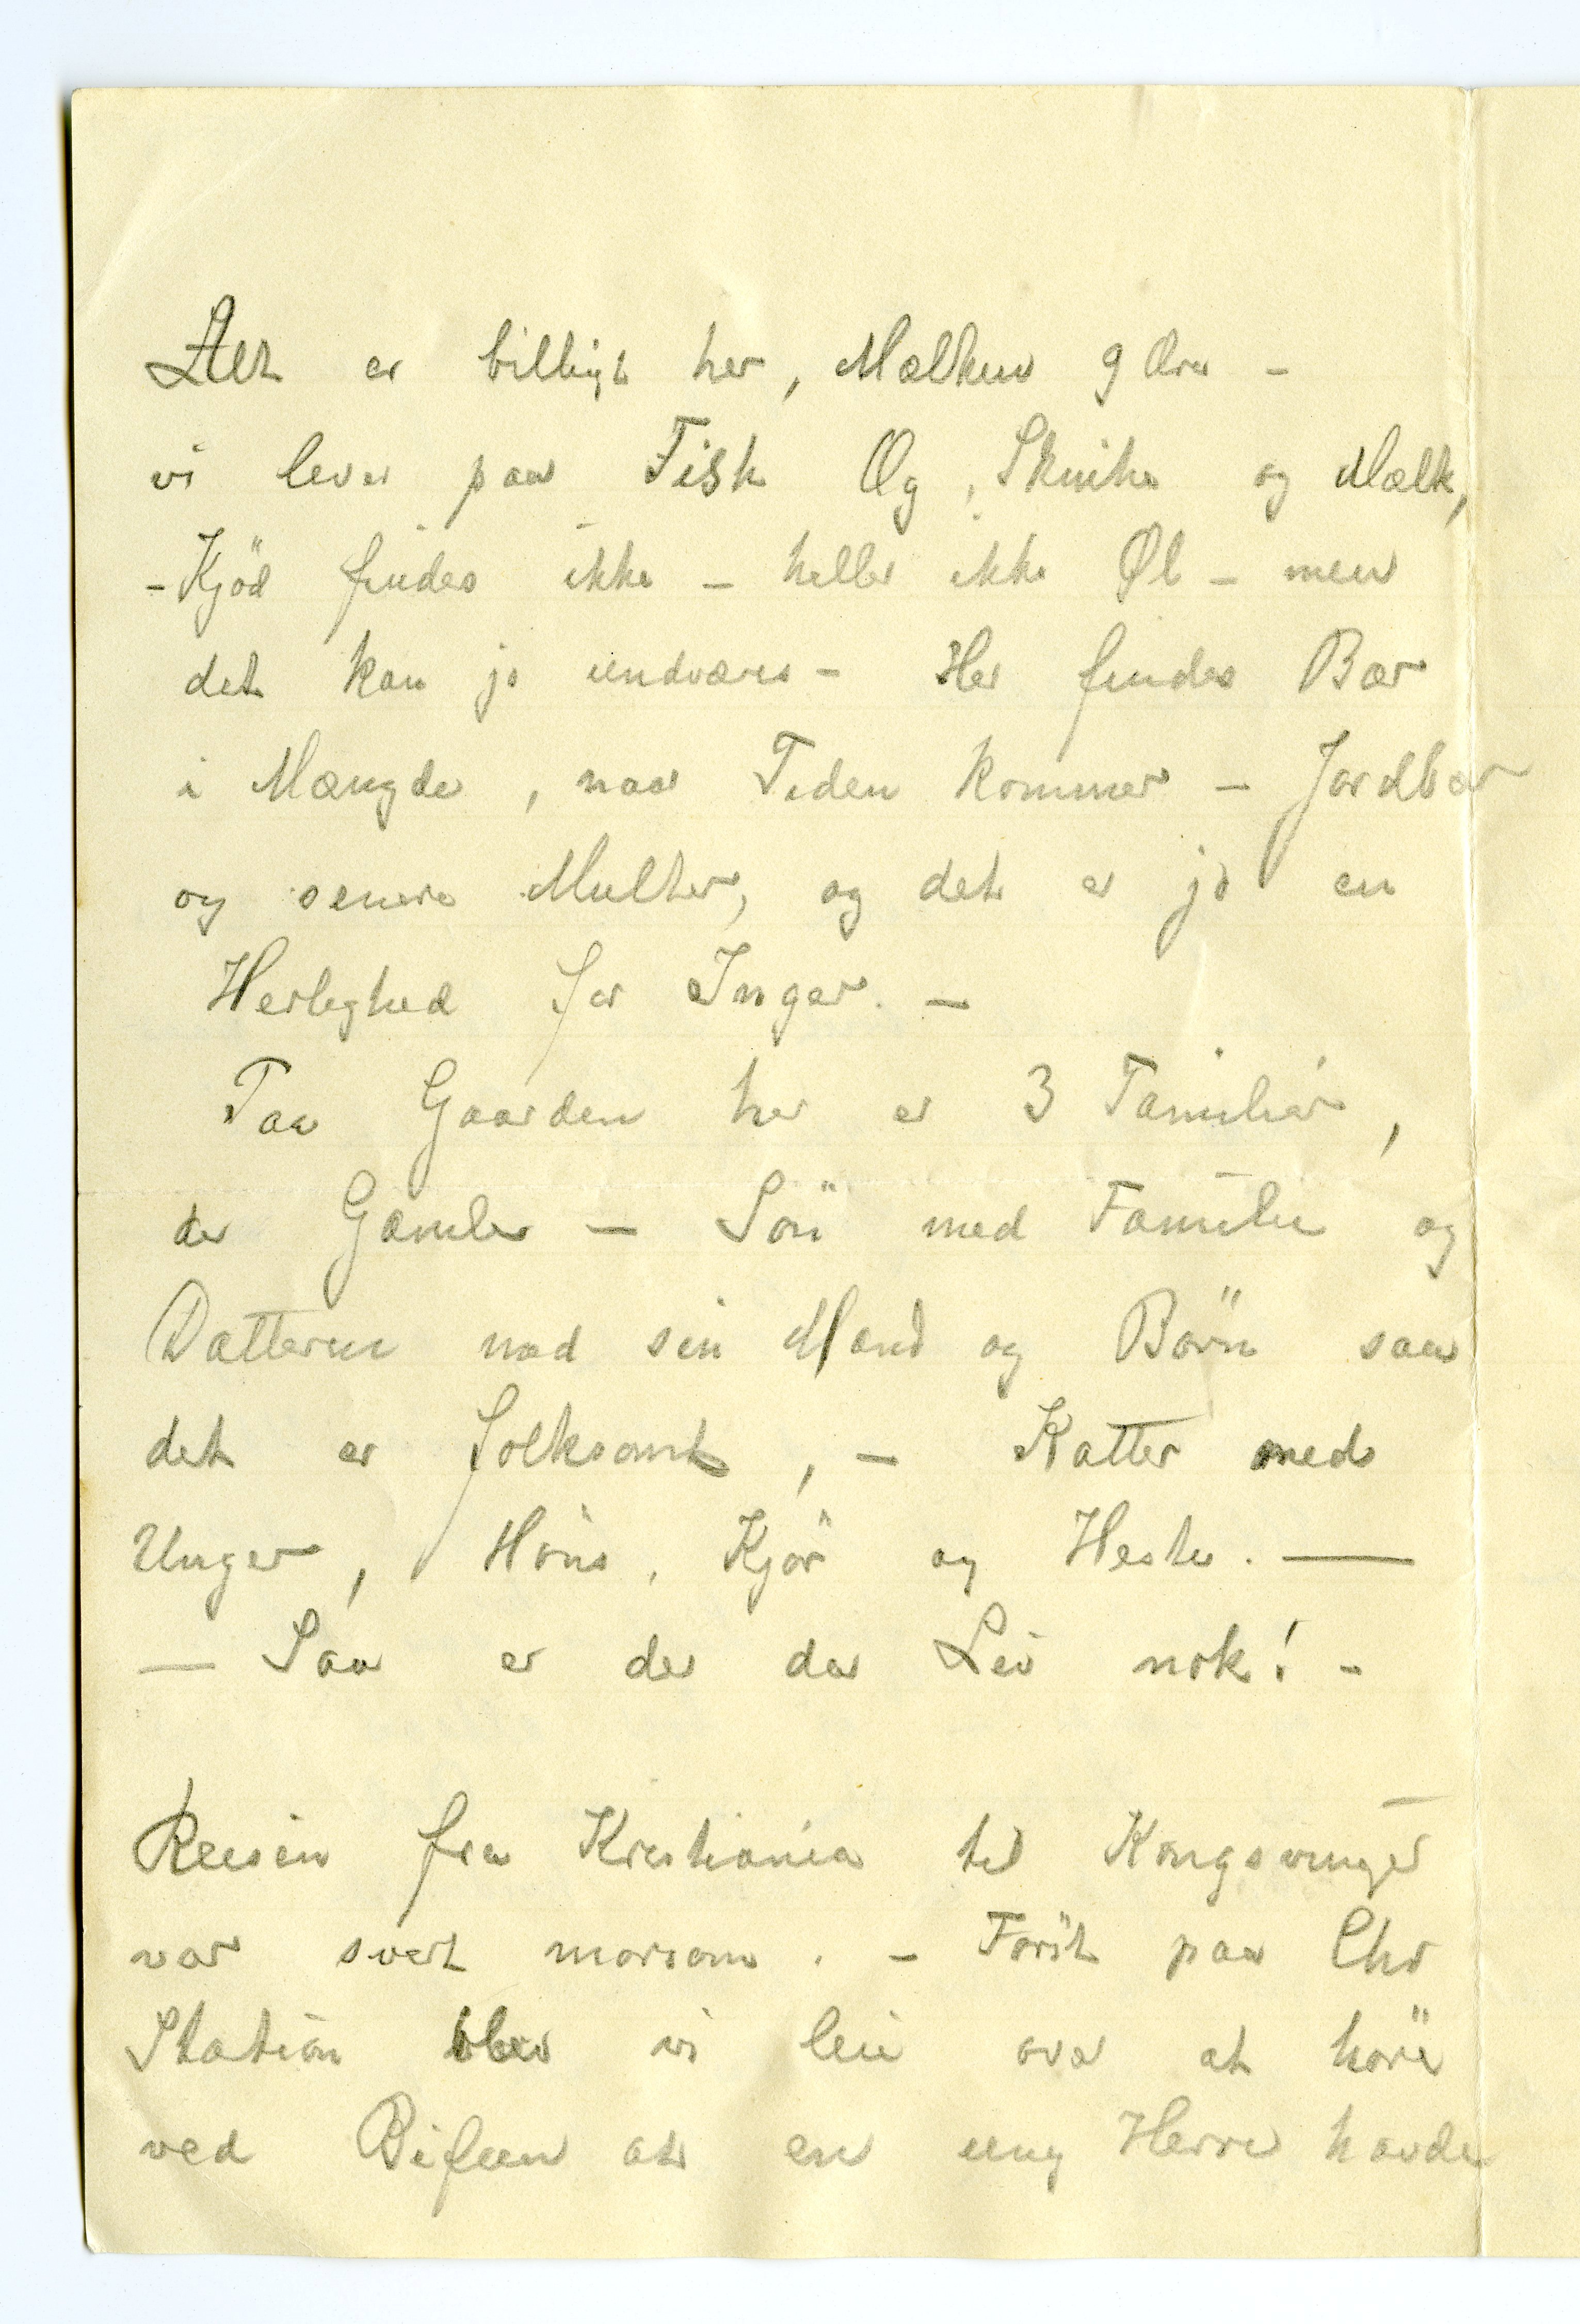 Alt er billigt her, Mælken 9 Øre -
vi lever paa Fisk Æg, Skinke og Mælk,
- Kjöd findes ikke - heller ikke Øl - men
det kan jo undværes - Her findes Bær
i Mængde, naar Tiden kommer - Jordbær
og senere Multer, og det er jo en
Herlighed for Inger. -
Paa Gaarden her er 3 Familier,
de Gamle - Sön med Familie og
Datteren med sin Mand og Börn saa
det er folksomt, - Katter med
Unger, Höns, Kjör og Heste. -
- Saa er der da Liv nok! -
Reisen fra Kristiania til Kongsvinger
var svært morsom. - Först paa Chr
Station blev vi leie over at höre
ved Bifeen at en ung Herre havde